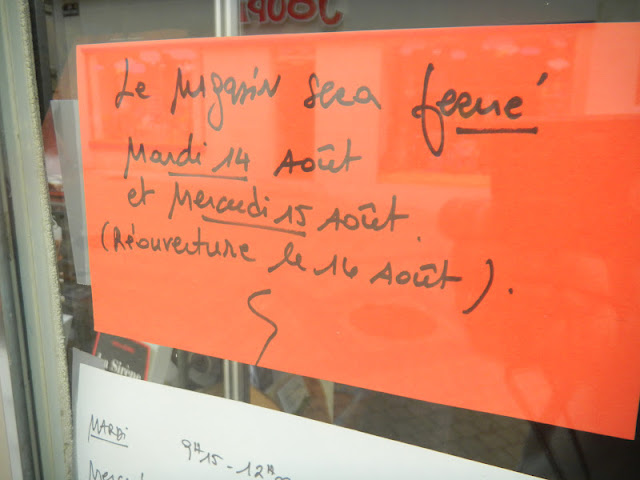 Le magasin sera fermé
Mardi 14 Août
et Mercredi 15 Août
(Réouverture le 16 Août).
La Sirène
MARDI 9H15 - 12H